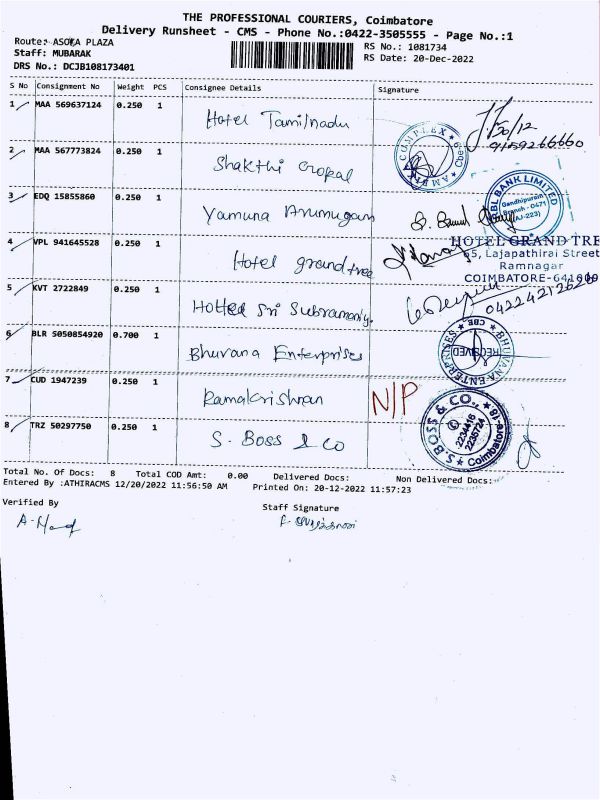 THE PROFESSIONAL COURIERS, Coimbatore
Delivery Runsheet - CMS - Phone No.:0422-3505555 - Page No.:1
Route: ASOKA PLAZA
Staff: MUBARAK
DRS No.: DCJB108173401
RS No.: 1081734
RS Date: 20-Dec-2022
S No Consignment No Weight PCS Consignee Details Signature
1 MAA 569637124 0.250 1 Hotel Tamilnadu
20/12
9159266660
AMBIKA COMPLEX
2 MAA 567773824 0.250 1 Shakthi Gopal
3 EDQ 15855860 0.250 1 Yamuna Arumugam
RBL BANK LIMITED
Gandhipuram
Branch - 0471
(AJ-223)
4 VPL 941645528 0.250 1 Hotel grand tree
HOTEL GRAND TRE
65, Lajapathirai Street
Ramnagar
COIMBATORE-641009
5 KVT 2722849 0.250 1 Hotel Sri Subramaniy.
6 BLR S050854920 0.700 1 Bhuvana Enterprises
BHUVANA ENTERPRISES
CBE
RECEIVED
7 CUD 1947239 0.250 1 Ramakrishnan N/P
8 TRZ 50297750 0.250 1 S. Boss & Co
S.BOSS & CO.,
2234416
2235724
Coimbatore-18
Total No. Of Docs: 8 Total COD Amt: 0.00 Delivered Docs: Non Delivered Docs:
Entered By :ATHIRACMS 12/20/2022 11:56:50 AM Printed On: 20-12-2022 11:57:23
Verified By
Staff Signature